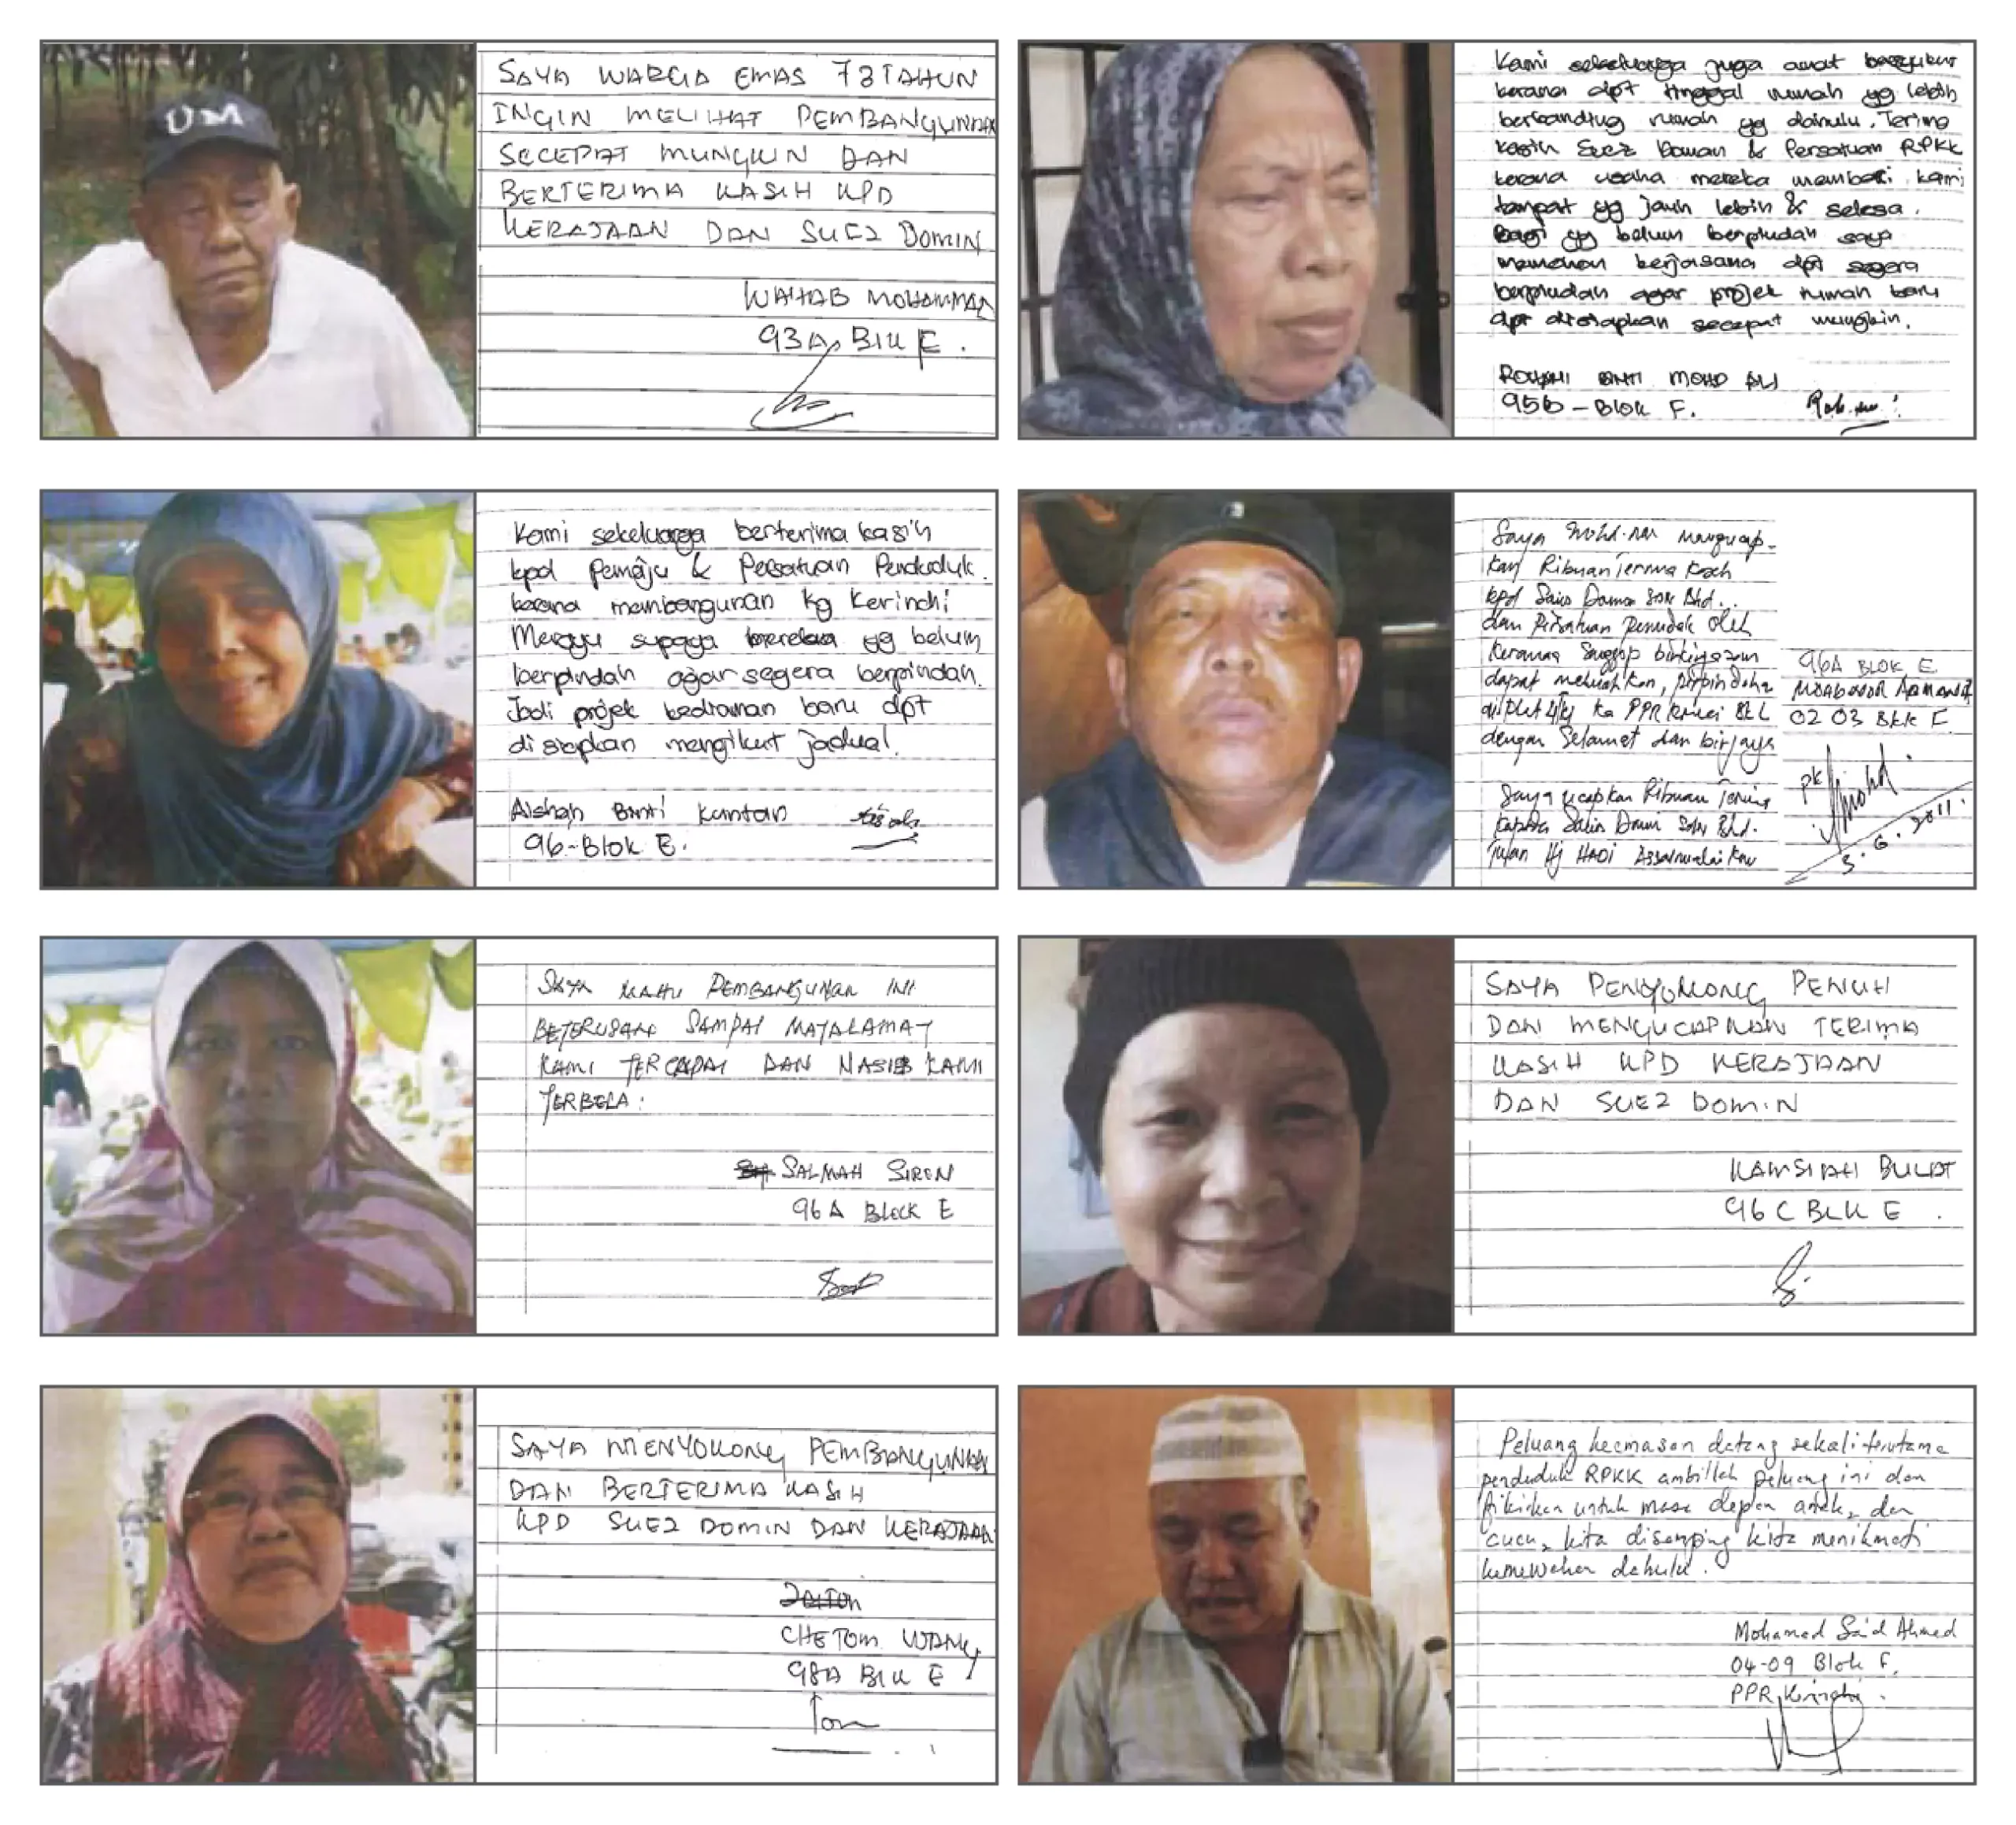 UM
SAYA WARGA EMAS 73 TAHUN
INGIN MELIHAT PEMBANGUNAN
SECEPAT MUNGKIN DAN
BERTERIMA KASIH KPD
KERAJAAN DAN SUEZ DOMIN
WAHAB MOHAMMAD
93A, BLK E.
Kami sekeluarga juga amat bersyukur
kerana dpt tinggal rumah yg lebih
berbanding rumah yg dahulu. Terima
kasih Suez Daman & Persatuan RPKK
kerana usaha mereka memberi kami
tempat yg jauh lebih & selesa.
Bagi yg belum berpindah saya
memohon kerjasama dpt segera
berpindah agar projek rumah baru
dpt disiapkan secepat mungkin.
ROHANI BINTI MOHD ALI
95B - Blok F.
Kami sekeluarga berterima kasih
kpd Pemaju & Persatuan Penduduk
kerana membangunan Kg Kerinchi
Merayu supaya mereka yg belum
berpindah agar segera berpindah.
Jadi projek kediaman baru dpt
disiapkan mengikut jadual.
Aishah Binti Kantan
96-Blok E.
Saya Mohd. Nor mengucap-
kan Ribuan Terima Kaseh
kpd Sdn Bhd.
dan Persatuan oleh
kerana
dapat
ka PPR
dengan Selamat dan birjaya
Saya ucapkan Ribuan Terima
Sdn Bhd.
Tuan Hj HADI Assalmualaikum
96A BLOK E
02 03 BLK F
3.6.2011.
SAYA MAHU PEMBANGUNAN INI
BETERUSAN SAMPAI MATALAMAT
KAMI TERCAPAI DAN NASIB KAMI
TERBELA:
SALMAH SIREN
96 A BLOCK E
SAYA PENYOKONG PENUH
DAN MENGUCAPKAN TERIMA
KASIH KPD KERAJAAN
DAN SUEZ DOMIN
KAMSIAH BULAT
96 C BLK E.
SAYA MENYOKONG PEMBANGUNAN
DAN BERTERIMA KASIH
KPD SUEZ DOMIN DAN KERAJAAN
CHE TOM WANG
98A BLK E
Tom
Peluang keemasan datang sekali terutama
penduduk RPKK ambillah peluang ini dan
fikirkan untuk masa depan anak2 dan
cucu2 kita disamping kita menikmati
kemewahan dahulu.
Mohamad Sa'd Ahmad
04-09 Blok F,
PPR Kerinchi.